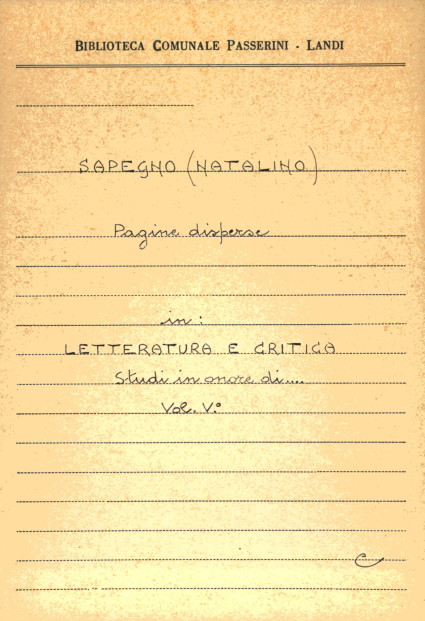 BIBLIOTECA COMUNALE PASSERINI - LANDI
SAPEGNO (NATALINO)
Pagine disperse
in:
LETTERATURA E CRITICA
Studi in onore di....
Vol. V.°